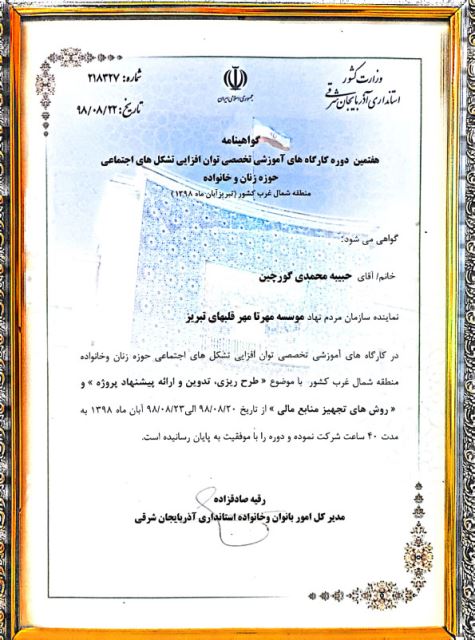 وزارت کشور
استانداری آذربایجان شرقی
جمهوری اسلامی ایران
شماره: ۲۱۸۳۲۷
تاریخ: ۹۸/۰۸/۲۲
گواهینامه
هفتمین دوره کارگاه های آموزشی تخصصی توان افزایی تشکل های اجتماعی
حوزه زنان و خانواده
منطقه شمال غرب کشور (تبریز آبان ماه ۱۳۹۸)
گواهی می شود:
خانم/ آقای حبیبه محمدی گورچین
نماینده سازمان مردم نهاد موسسه مهرتا مهر قلبهای تبریز
در کارگاه های آموزشی تخصصی توان افزایی تشکل های اجتماعی حوزه زنان وخانواده
منطقه شمال غرب کشور با موضوع « طرح ریزی، تدوین و ارائه پیشنهاد پروژه » و
« روش های تجهیز منابع مالی » از تاریخ ۹۸/۰۸/۲۰ الی ۹۸/۰۸/۲۳ آبان ماه ۱۳۹۸ به
مدت ۴۰ ساعت شرکت نموده و دوره را با موفقیت به پایان رسانیده است.
رقیه صادقزاده
مدیر کل امور بانوان وخانواده استانداری آذربایجان شرقی